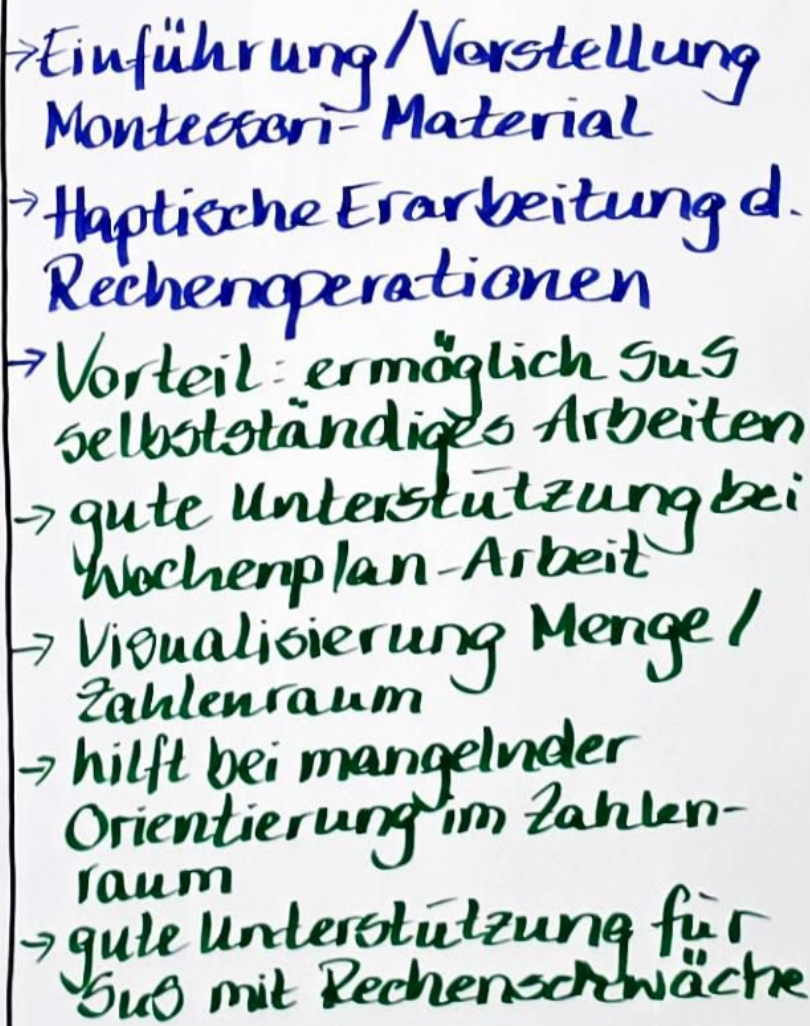 →Einführung/Vorstellung
Montessori-Material
→Haptische Erarbeitung d.
Rechenoperationen
→Vorteil: ermöglich SuS
selbstständiges Arbeiten
→ gute Unterstützung bei
Wochenplan-Arbeit
→ Visualisierung Menge/
Zahlenraum
→ hilft bei mangelnder
Orientierung im Zahlen-
raum
→ gute Unterstützung für
SuS mit Rechenschwäche